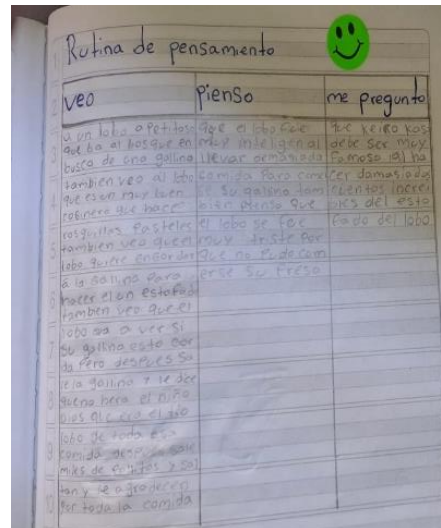 Rutina de pensamiento
veo
a un lobo apetitoso
que ba al bosque en
busca de una gallina
tambien veo al lobo
que es un muy buen
cosinero que hace
rosquillas pasteles
tambien veo que el
lobo quiere engordar
a la gallina para
hacer el un estofado
tambien veo que el
lobo va a ver si
su gallina esta gor
da pero despues sa
le la gallina y le dice
el niño
dios
lobo de toda esa
comida despues salen
miles de pollitos y sal
tan y le agradecen
por toda la comida
pienso
que el lobo fue
muy inteligen al
llevar demasiada
comida para comer
se su gallina tam
bien pienso que
el lobo se fue
muy triste por
que no pudo com
erse su presa
me pregunto
que keiko kas
debe ser muy
famoso al ha
cer demasiado
cuentos increi
bles del esto
fado del lobo